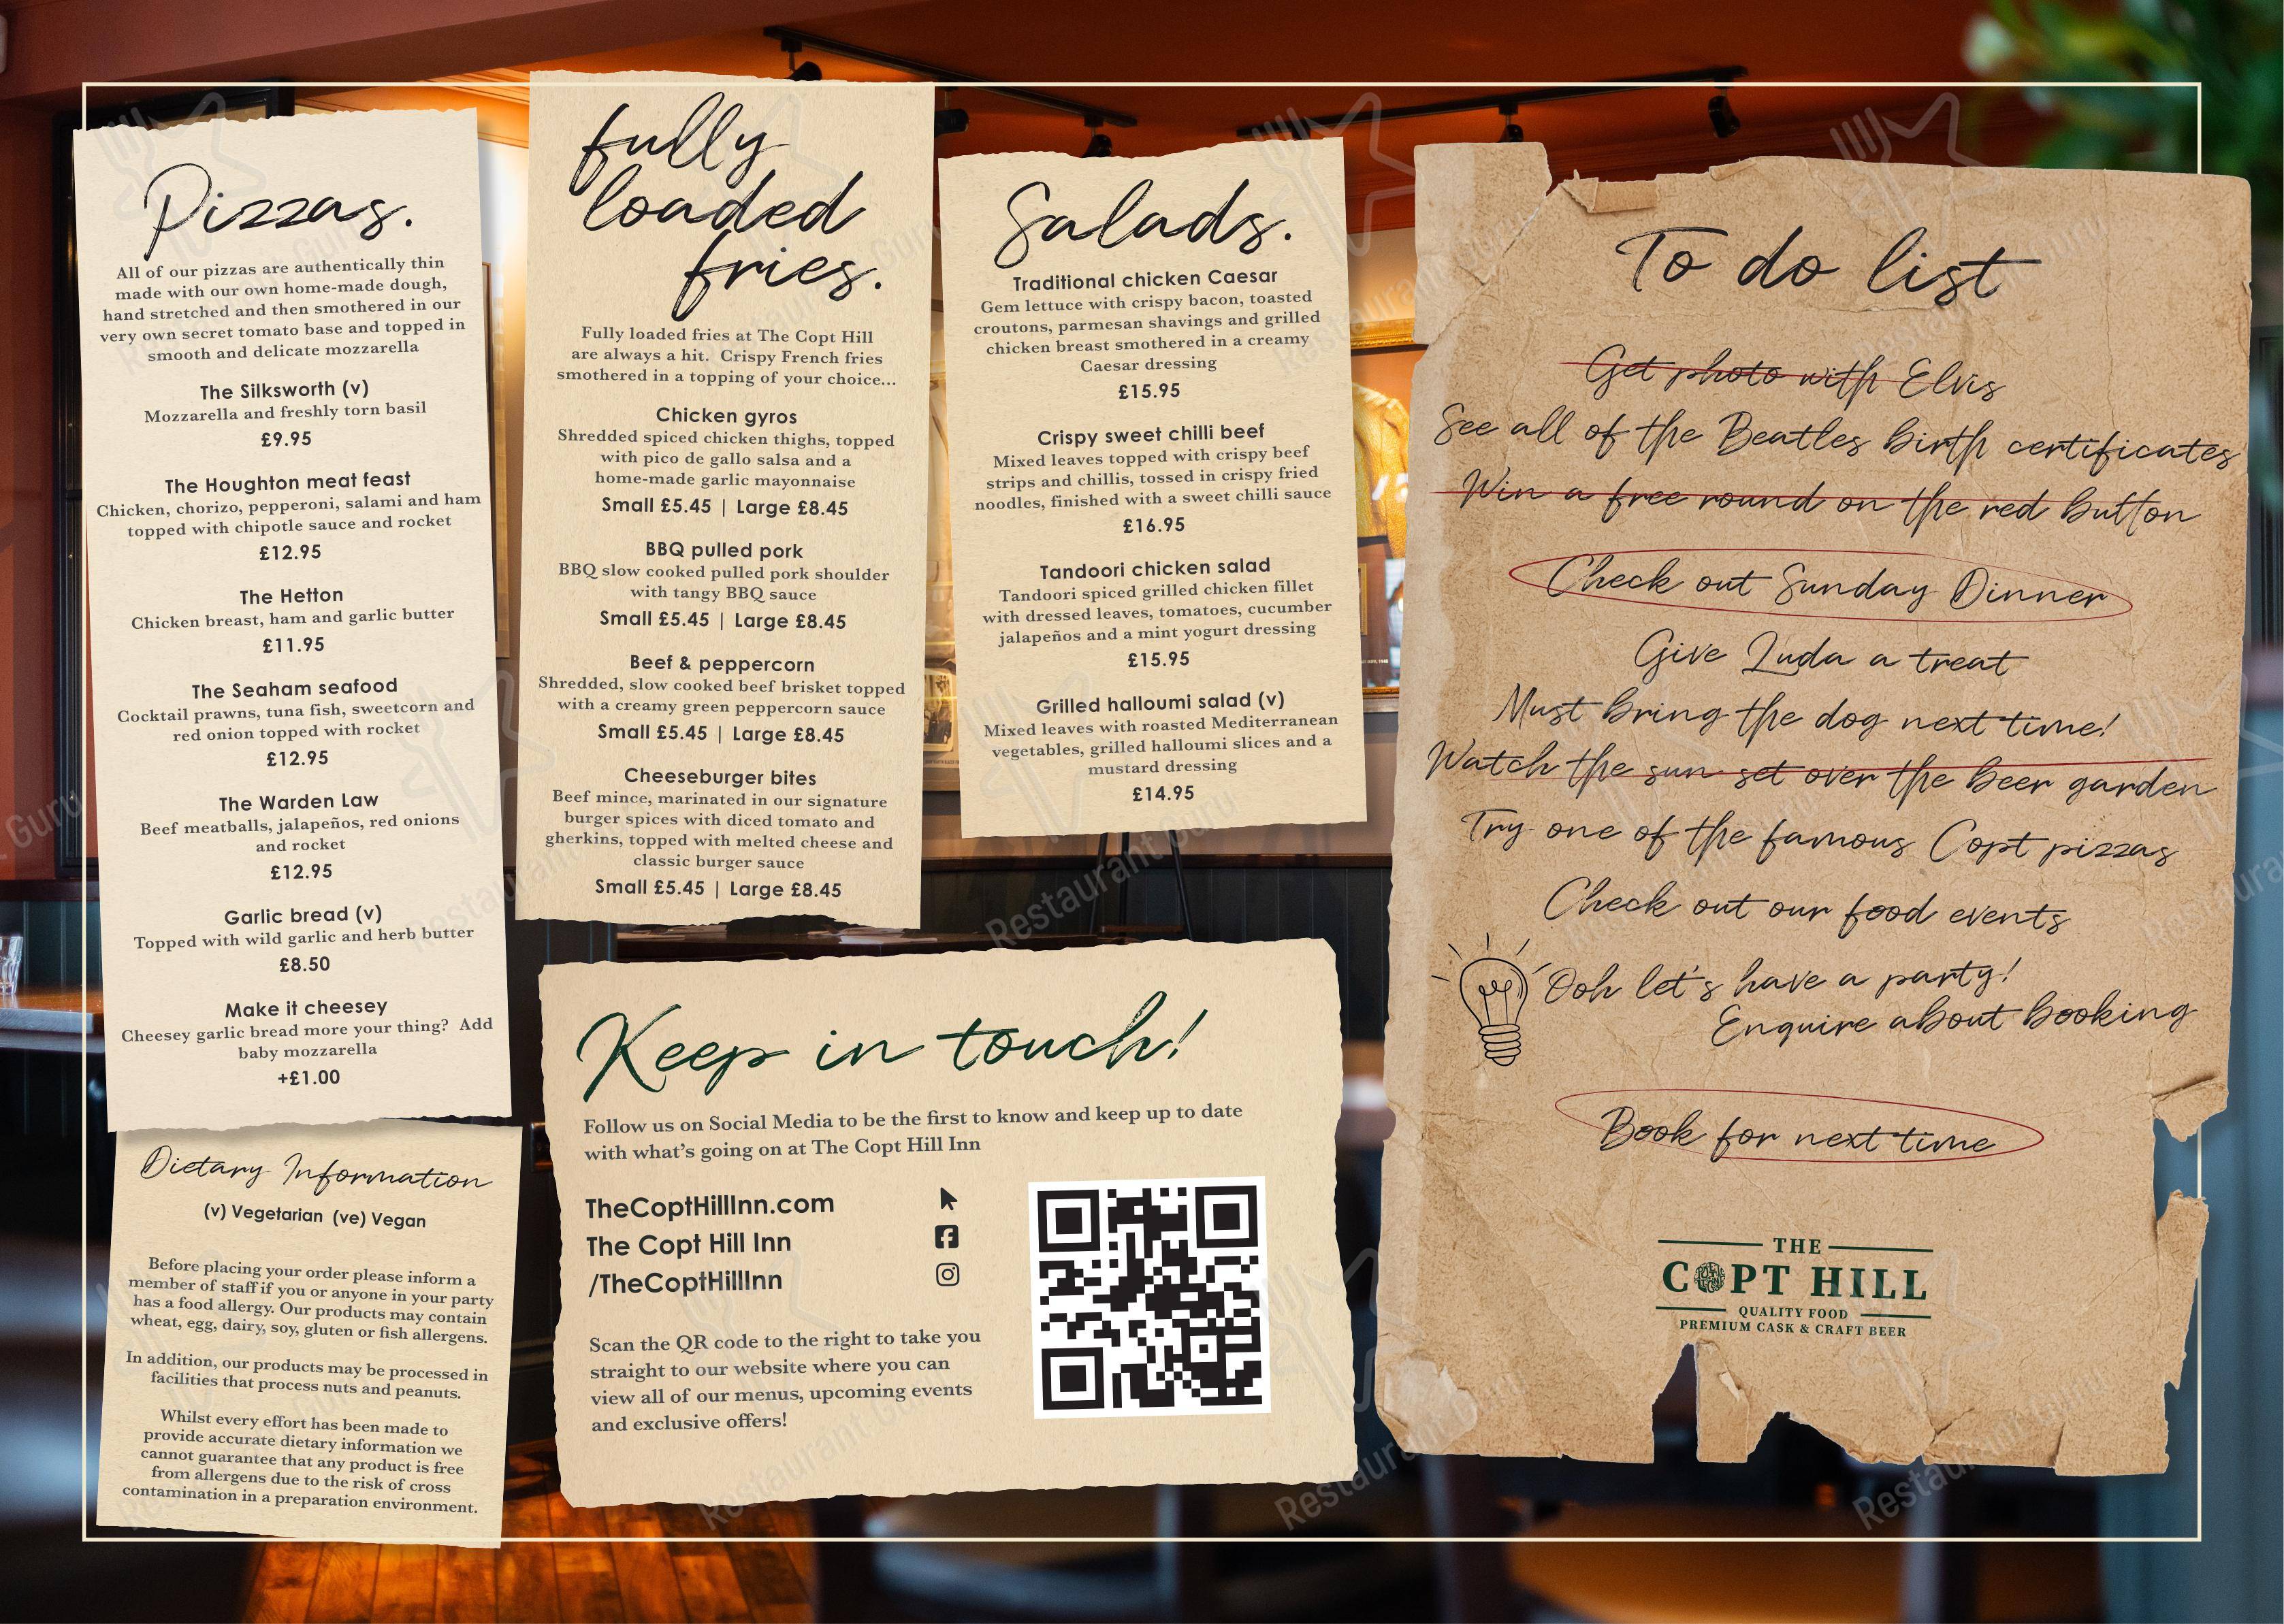 Pizzas.
All of our pizzas are authentically thin
made with our own home-made dough,
hand stretched and then smothered in our
very own secret tomato base and topped in
smooth and delicate mozzarella
The Silksworth (v)
Mozzarella and freshly torn basil
£9.95
The Houghton meat feast
Chicken, chorizo, pepperoni, salami and ham
topped with chipotle sauce and rocket
£12.95
The Hetton
Chicken breast, ham and garlic butter
£11.95
The Seaham seafood
Cocktail prawns, tuna fish, sweetcorn and
red onion topped with rocket
£12.95
The Warden Law
Beef meatballs, jalapeños, red onions
and rocket
£12.95
Garlic bread (v)
Topped with wild garlic and herb butter
£8.50
Make it cheesey
Cheesey garlic bread more your thing?  Add
baby mozzarella
+£1.00
Dietary Information
(v) Vegetarian (ve) Vegan
Before placing your order please inform a
member of staff if you or anyone in your party
has a food allergy. Our products may contain
wheat, egg, dairy, soy, gluten or fish allergens.
In addition, our products may be processed in
facilities that process nuts and peanuts.
Whilst every effort has been made to
provide accurate dietary information we
cannot guarantee that any product is free
from allergens due to the risk of cross
contamination in a preparation environment.
fully
loaded
fries.
Fully loaded fries at The Copt Hill
are always a hit.  Crispy French fries
smothered in a topping of your choice...
Chicken gyros
Shredded spiced chicken thighs, topped
with pico de gallo salsa and a
home-made garlic mayonnaise
Small £5.45 | Large £8.45
BBQ pulled pork
BBQ slow cooked pulled pork shoulder
with tangy BBQ sauce
Small £5.45 | Large £8.45
Beef & peppercorn
Shredded, slow cooked beef brisket topped
with a creamy green peppercorn sauce
Small £5.45 | Large £8.45
Cheeseburger bites
Beef mince, marinated in our signature
burger spices with diced tomato and
gherkins, topped with melted cheese and
classic burger sauce
Small £5.45 | Large £8.45
Salads.
Traditional chicken Caesar
Gem lettuce with crispy bacon, toasted
croutons, parmesan shavings and grilled
chicken breast smothered in a creamy
Caesar dressing
£15.95
Crispy sweet chilli beef
Mixed leaves topped with crispy beef
strips and chillis, tossed in crispy fried
noodles, finished with a sweet chilli sauce
£16.95
Tandoori chicken salad
Tandoori spiced grilled chicken fillet
with dressed leaves, tomatoes, cucumber
jalapeños and a mint yogurt dressing
£15.95
Grilled halloumi salad (v)
Mixed leaves with roasted Mediterranean
vegetables, grilled halloumi slices and a
mustard dressing
£14.95
Keep in touch!
Follow us on Social Media to be the first to know and keep up to date
with what's going on at The Copt Hill Inn
TheCoptHillInn.com
The Copt Hill Inn
/TheCoptHillInn
Scan the QR code to the right to take you
straight to our website where you can
view all of our menus, upcoming events
and exclusive offers!
To do list
Get photo with Elvis
See all of the Beatles birth certificates
Win a free round on the red button
Check out Sunday Dinner
Give Luda a treat
Must bring the dog next time!
Watch the sun set over the beer garden
Try one of the famous Copt pizzas
Check out our food events
Ooh let's have a party!
Enquire about booking
Book for next time
THE
COPT HILL
QUALITY FOOD
PREMIUM CASK & CRAFT BEER
Restaurant Guru